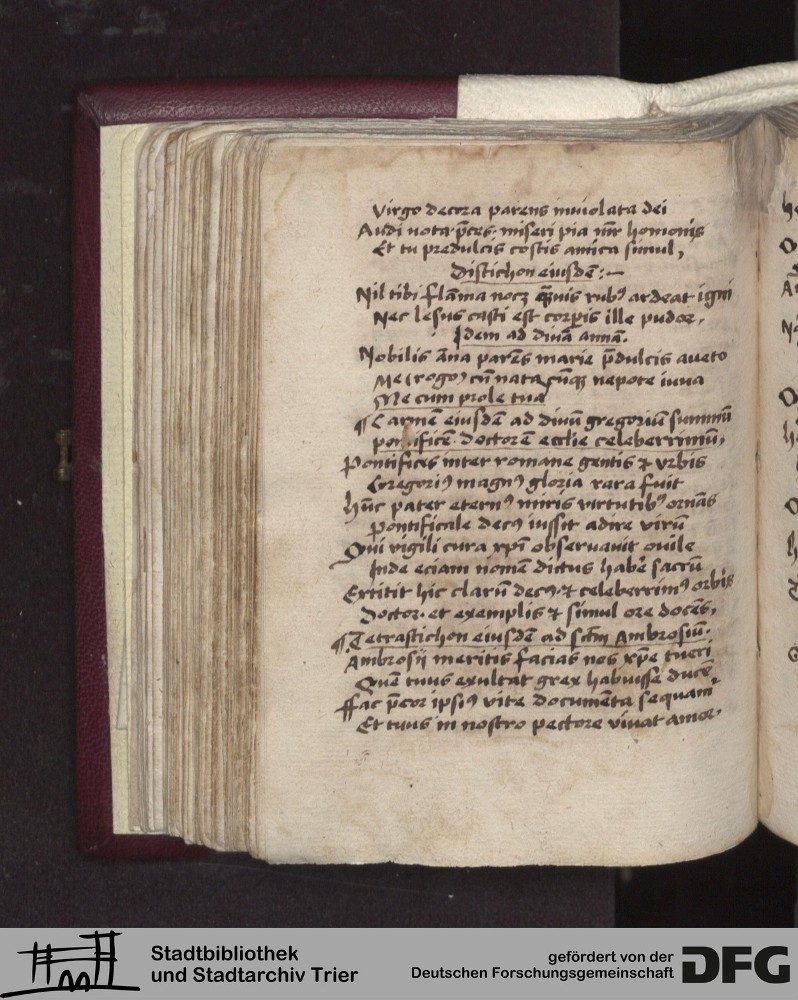 Virgo decora parens inuiolata dei
Audi nota p̄ces. miseri pia mr̄ homonis
Et tu predulcis costis amica simul,
Distichon eiusdē:~
Nil tibi flāma nocȝ q̄uis rubꝰ ardeat igni
Nec lesus casti est corp̄is ille pudor.
Idem ad diuā annā.
Nobilis āna parēs marie p̄dulcis aueto
Me (rogo) cū nata cūqꝫ nepote iuua
Me cum prole tua
¶ Carmē eiusdē ad diuū gregoriū summū
pontificē. doctorē ecclie celeberrimū,
Pontifices inter romane gentis & vrbis
Gregoriꝰ magnꝰ gloria rara fuit
hūc pater eternꝰ miris virtutibꝰ ornās
Pontificale decꝰ iussit adire virū
Qui vigili cura xp̄i obseruauit ouile
Inde eciam nomē dictus habē sacrū
Extitit hic clarū decꝰ & celeberrimꝰ orbis
Doctor. et exemplis & simul ore docēs,
¶ Tetrastichon eiusdē ad sctm̄ Ambrosiū.
Ambrosij meritis facias nos xp̄e tueri
Quē tuus exultat grex habuisse ducē
ffac p̄cor ipsiꝰ vite documēta sequam̄
Et tuus in nostro pectore viuat amor.
Stadtbibliothek
und Stadtarchiv Trier
gefördert von der
Deutschen Forschungsgemeinschaft
DFG